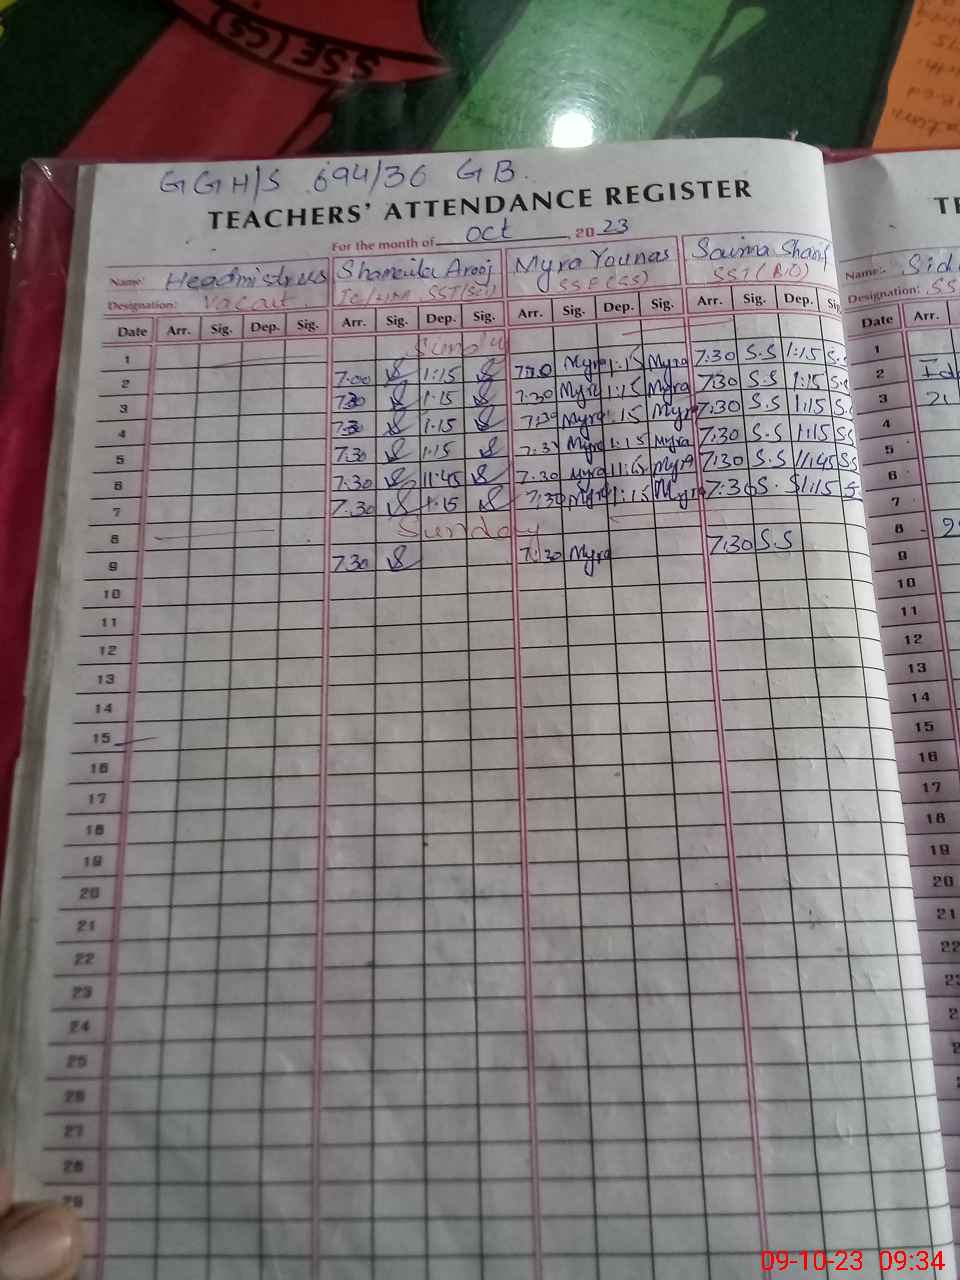 SSE(CS)
GGH/S 694/36 GB.
TEACHERS' ATTENDANCE REGISTER
For the month of Oct 2023
Name: Headmistrus Shameila Arooj Myra Younas Saima Sharif
Designation: Vacant SST(Sci) SSE(SS) SST(BIO)
Date Arr. Sig. Dep. Sig. Arr. Sig. Dep. Sig. Arr. Sig. Dep. Sig. Arr. Sig. Dep. Sig.
1 Sunday
2 7:00 1:15 7:30 Myra 1:15 Myra 7:30 S.S 1:15 S.S
3 7:30 1:15 7:30 Myra 1:15 Myra 7:30 S.S 1:15 S.S
4 7:30 1:15 7:30 Myra 1:15 Myra 7:30 S.S 1:15 S.
5 7:30 1:15 7:30 Myra 1:15 Myra 7:30 S.S 1:15 SS
6 7:30 11:45 7:30 Myra 11:45 Myra 7:30 S.S 11:45 SS
7 7:30 1:15 7:30 Myra 1:15 Myra 7:30 S.S 1:15 S
8 Sunday
9 7:30 7:30 Myra 7:30 S.S
10
11
12
13
14
15
16
17
18
19
20
21
22
23
24
25
26
27
28
29
Name:- Sid
Designation: SS
Date Arr.
1
2
3
4
5
6
7
8
9
10
11
12
13
14
15
16
17
18
19
20
21
22
09-10-23 09:34